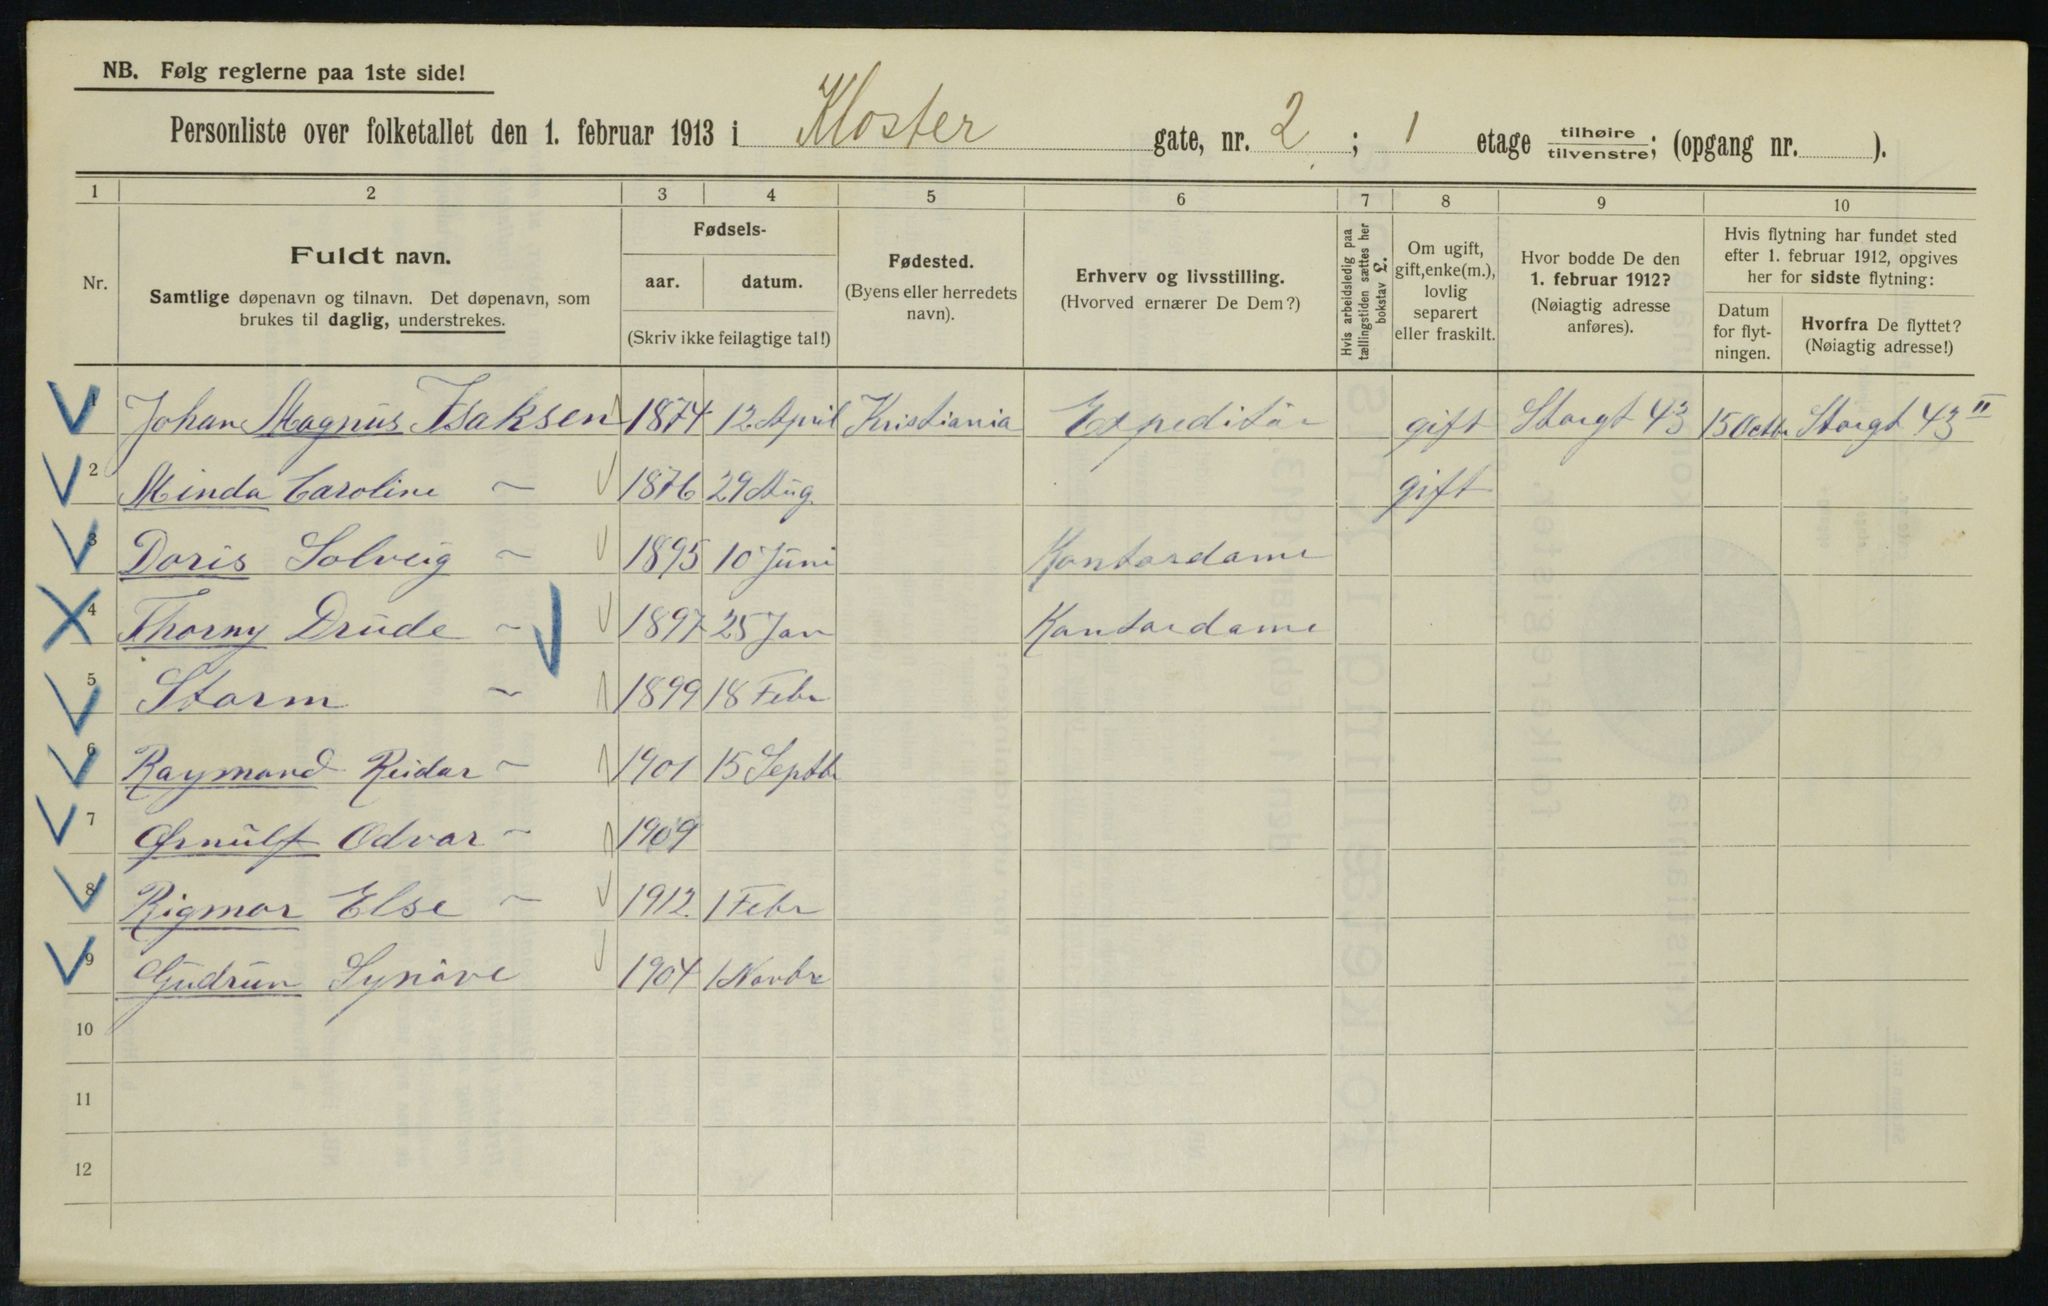 NB. Følg reglerne paa 1ste side!
Personliste over folketallet den 1. februar 1913 i Kloster gate, nr. 2 ; 1 etage tilhøire/tilvenstre; (opgang nr. ).
1 2 3 4 5 6 7 8 9 10
Nr.
Fuldt navn.
Samtlige døpenavn og tilnavn. Det døpenavn, som
brukes til daglig, understrekes.
Fødsels-
aar. datum.
(Skriv ikke feilagtige tal!)
Fødested.
(Byens eller herredets
navn).
Erhverv og livsstilling.
(Hvorved ernærer De Dem?)
Hvis arbeidsledig paa
tællingstiden sættes her
bokstav L.
Om ugift,
gift, enke(m.),
lovlig
separert
eller fraskilt.
Hvor bodde De den
1. februar 1912?
(Nøiagtig adresse
anføres).
Hvis flytning har fundet sted
efter 1. februar 1912, opgives
her for sidste flytning:
Datum
for flyt-
ningen.
Hvorfra De flyttet?
(Nøiagtig adresse!)
1 Johan Magnus Isaksen 1874 12 April Kristiania Expeditør gift Storgt 43 15 Octbr Storgt 43 II
2 Minda Caroline — 1876 29 Aug. gift
3 Doris Solveig — 1895 10 Juni Kontordame
4 Thorny Drude — 1897 25 Jan Kontordame
5 Storm — 1899 18 Febr
6 Raymond Reidar — 1901 15 Septbr
7 Ørnulf Odvar — 1909
8 Rigmor Else — 1912 1 Febr
9 Gudrun Synøve 1904 1 Novbr
10
11
12